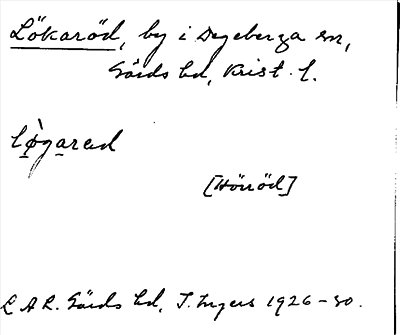 Lökaröd, by i Degeberga sn,
Gärds hd, Krist. l.
lø̀garөd
[Hörröd]
L A L. Gärds hd, I. Ingers 1926-30.